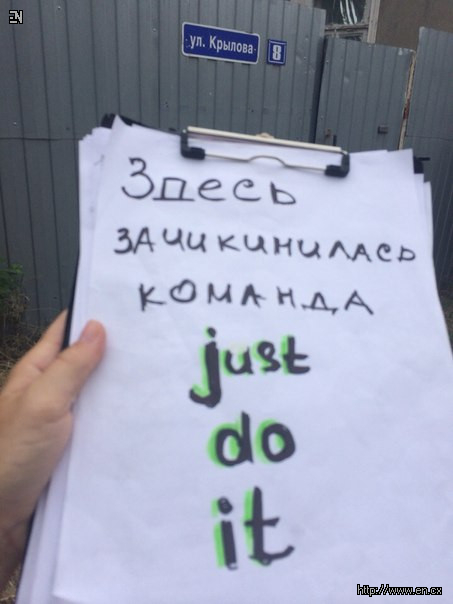 EN
ул. Крылова
8
Здесь
зачикинилась
команда
just
do
it
http://www.en.cx